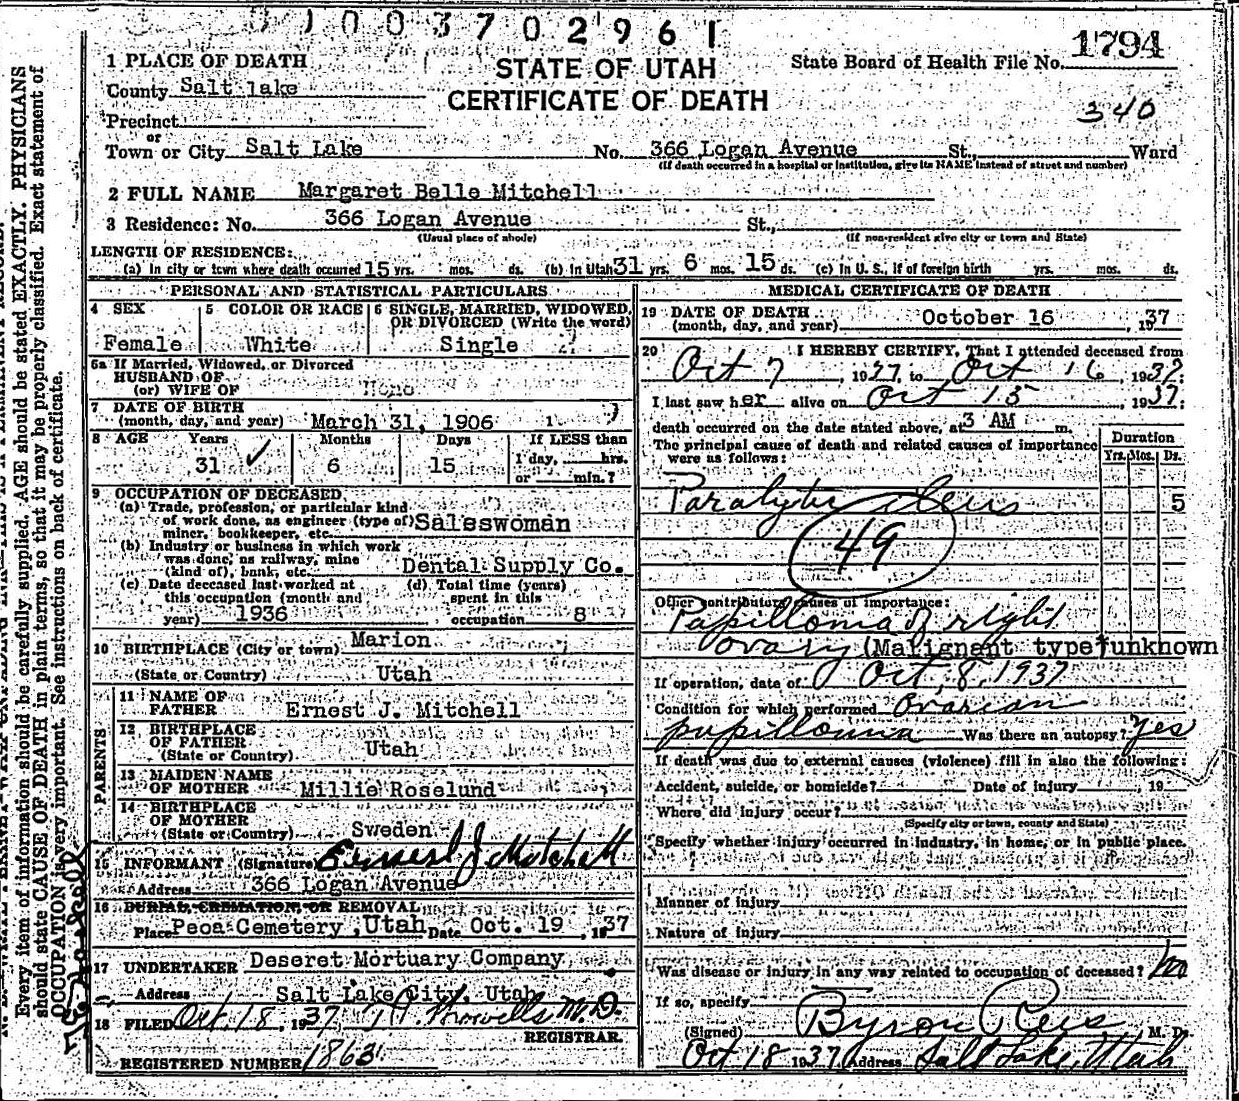 1003702961
1 PLACE OF DEATH
STATE OF UTAH
CERTIFICATE OF DEATH
State Board of Health File No. 1794
340
County Salt Lake
Precinct
or
Town or City Salt Lake No. 366 Logan Avenue St., Ward
(If death occurred in a hospital or institution, give its NAME instead of street and number)
2 FULL NAME Margaret Belle Mitchell
3 Residence: No. 366 Logan Avenue St.,
(Usual place of abode) (If non-resident give city or town and State)
LENGTH OF RESIDENCE:
(a) In city or town where death occurred 15 yrs. mos. ds. (b) In Utah 31 yrs. 6 mos. 15 ds. (c) In U. S., if of foreign birth yrs. mos. ds.
PERSONAL AND STATISTICAL PARTICULARS
4 SEX
Female
5 COLOR OR RACE
White
6 SINGLE, MARRIED, WIDOWED, OR DIVORCED (Write the word)
Single
6a If Married, Widowed, or Divorced
HUSBAND OF
(or) WIFE OF None
7 DATE OF BIRTH
(month, day, and year) March 31, 1906
8 AGE Years Months Days If LESS than
31 6 15 1 day, hrs.
or min.?
9 OCCUPATION OF DECEASED
(a) Trade, profession, or particular kind
of work done, as engineer (type of) Saleswoman
miner, bookkeeper, etc.
(b) Industry or business in which work
was done, as railway, mine
(kind of), bank, etc. Dental Supply Co.
(c) Date deceased last worked at
this occupation (month and
year) 1936
(d) Total time (years)
spent in this
occupation 8
10 BIRTHPLACE (City or town) Marion
(State or Country) Utah
PARENTS
11 NAME OF
FATHER Ernest J. Mitchell
12 BIRTHPLACE
OF FATHER Utah
(State or Country)
13 MAIDEN NAME
OF MOTHER Millie Roselund
14 BIRTHPLACE
OF MOTHER
(State or Country) Sweden
15 INFORMANT (Signature) Ernest J Mitchell
Address 366 Logan Avenue
16 BURIAL, CREMATION, OR REMOVAL
Place Peoa Cemetery, Utah Date Oct. 19, 1937
17 UNDERTAKER Deseret Mortuary Company
Address Salt Lake City, Utah
18 FILED Oct. 18, 1937, M.D.
REGISTRAR.
REGISTERED NUMBER 1863
MEDICAL CERTIFICATE OF DEATH
19 DATE OF DEATH
(month, day, and year) October 16, 1937
20 I HEREBY CERTIFY, That I attended deceased from
Oct 7, 1937, to Oct 16, 1937.
I last saw her alive on Oct 15, 1937.
death occurred on the date stated above, at 3 AM m.
The principal cause of death and related causes of importance
were as follows:
Duration
Yrs. Mos. Ds.
Paralytic Ileus 5
49
Other contributory causes of importance:
Papilloma of right
ovary (Malignant type unknown
If operation, date of Oct, 8, 1937
Condition for which performed Ovarian
papilloma Was there an autopsy? Yes
If death was due to external causes (violence) fill in also the following:
Accident, suicide, or homicide? Date of injury, 19
Where did injury occur?
(Specify city or town, county and State)
Specify whether injury occurred in industry, in home, or in public place.
Manner of injury
Nature of injury
Was disease or injury in any way related to occupation of deceased? No
If so, specify
(Signed) Byron Rees, M. D.
Oct 18 1937 Address Salt Lake, Utah
Every item of information should be carefully supplied. AGE should be stated EXACTLY. PHYSICIANS
should state CAUSE OF DEATH in plain terms, so that it may be properly classified. Exact statement of
OCCUPATION is very important. See instructions on back of certificate.